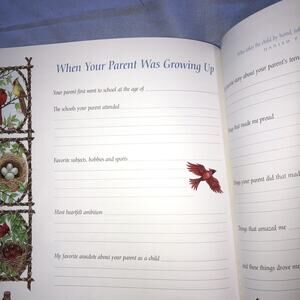 When Your Parent Was Growing Up
Your parent first went to school at the age of
The schools your parent attended
Favorite subjects, hobbies and sports
Most heartfelt ambition
My favorite anecdote about your parent as a child
takes the child by hand,
story about your parent's teen
that made me proud
your parent did that made
Things that amazed me
and these things drove me